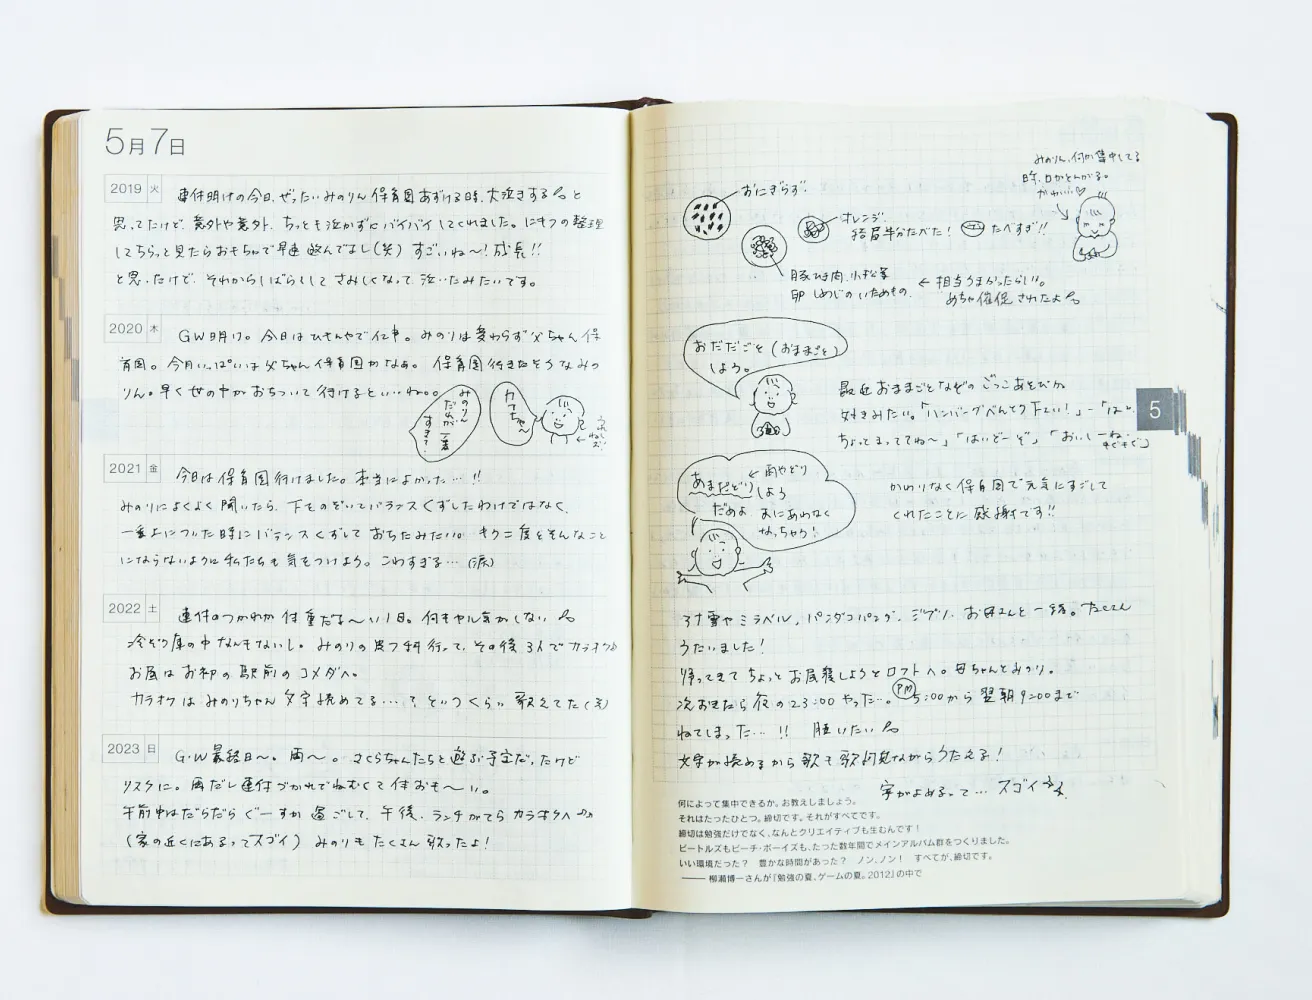 5月7日
2019 火
連休明けの今日、ぜったいみのりん保育園あずける時、大泣きすると
思ってたけど、意外や意外、ちっとも泣かずにバイバイしてくれました。にもつの整理
してちらっと見たらおもちゃで早速遊んでるし(笑) すごいね〜!成長!!
と思ったけど、それからしばらくしてさみしくなって泣いたみたいです。
2020 木
GW明け。今日はひもんやで仕事。みのりは変わらず父ちゃん保
育園。今月いっぱいは父ちゃん保育園かなぁ。保育園行きたそうなみの
りん。早く世の中がおちついて行けるといいね。。
みのりん
だれが一番
すき?
カアちゃん
2021 金
今日は保育園行けました。本当によかった…!!
みのりによくよく聞いたら、下をのぞいてバランスくずしたわけではなく、
一番上についた時にバランスくずしておちたみたい。もう二度とそんなこと
にならないように私たちも気をつけよう。こわすぎる…(涙)
2022 土
連休のつかれか体重だる〜い1日。何もヤル気がしない
冷ぞう庫の中なんもないし。みのりの歯科行って、その後3人でカラオケ♪
お昼はお初の駅前のコメダへ。
カラオケはみのりちゃん文字読めてる…?というくらい歌えてた(笑)
2023 日
G・W最終日〜。雨〜。さくらちゃんたちと遊ぶ予定だったけど
リスケに。雨だし連休づかれでねむくて体おも〜い。
午前中はだらだらぐーすか過ごして、午後、ランチがてらカラオケへ♪♪
(家の近くにあるってスゴイ) みのりもたくさん歌ったよ!
みのりん、何か集中してる
時、口がとんがる。
かわいい♡
おにぎらず。
オレンジ。
結局半分たべた! たべすぎ!!
豚ひき肉、小松菜
卵 しめじのいためもの
← 相当うまかったらしい。
めちゃ催促されたよ
おだだごと(おままごと)
しよう。
最近おままごとなどのごっこあそびが
好きみたい。「ハンバーグべんとう下さい!」-「はい、
ちょっとまっててね〜」「はいどーぞ」「おいしーね
もぐもぐ」
あまだどり ← 雨やどり
しよう
だめよ まにあわなく
なっちゃう!
かわりなく保育園で元気にすごして
くれたことに感謝です!!
アナ雪やミラベル、パンダコパンダ、ジブリ。お母さんと一緒。たくさん
うたいました!
帰ってきてちょっとお昼寝しようとロフトへ。母ちゃんとみのり。
次おきたら夜の23:00やった…。PM 5:00から翌朝9:00まで
ねてしまった…!! 腰いたい
文字が読めるから歌も歌詞見ながらうたえる!
字がよめるって… スゴイ
5
何によって集中できるか。お教えしましょう。
それはたったひとつ。締切です。それがすべてです。
締切は勉強だけでなく、なんとクリエイティブも生むんです!
ビートルズもビーチ・ボーイズも、たった数年間でメインアルバム群をつくりました。
いい環境だった? 豊かな時間があった? ノン、ノン! すべてが、締切です。
―― 柳瀬博一さんが『勉強の夏、ゲームの夏。2012』の中で